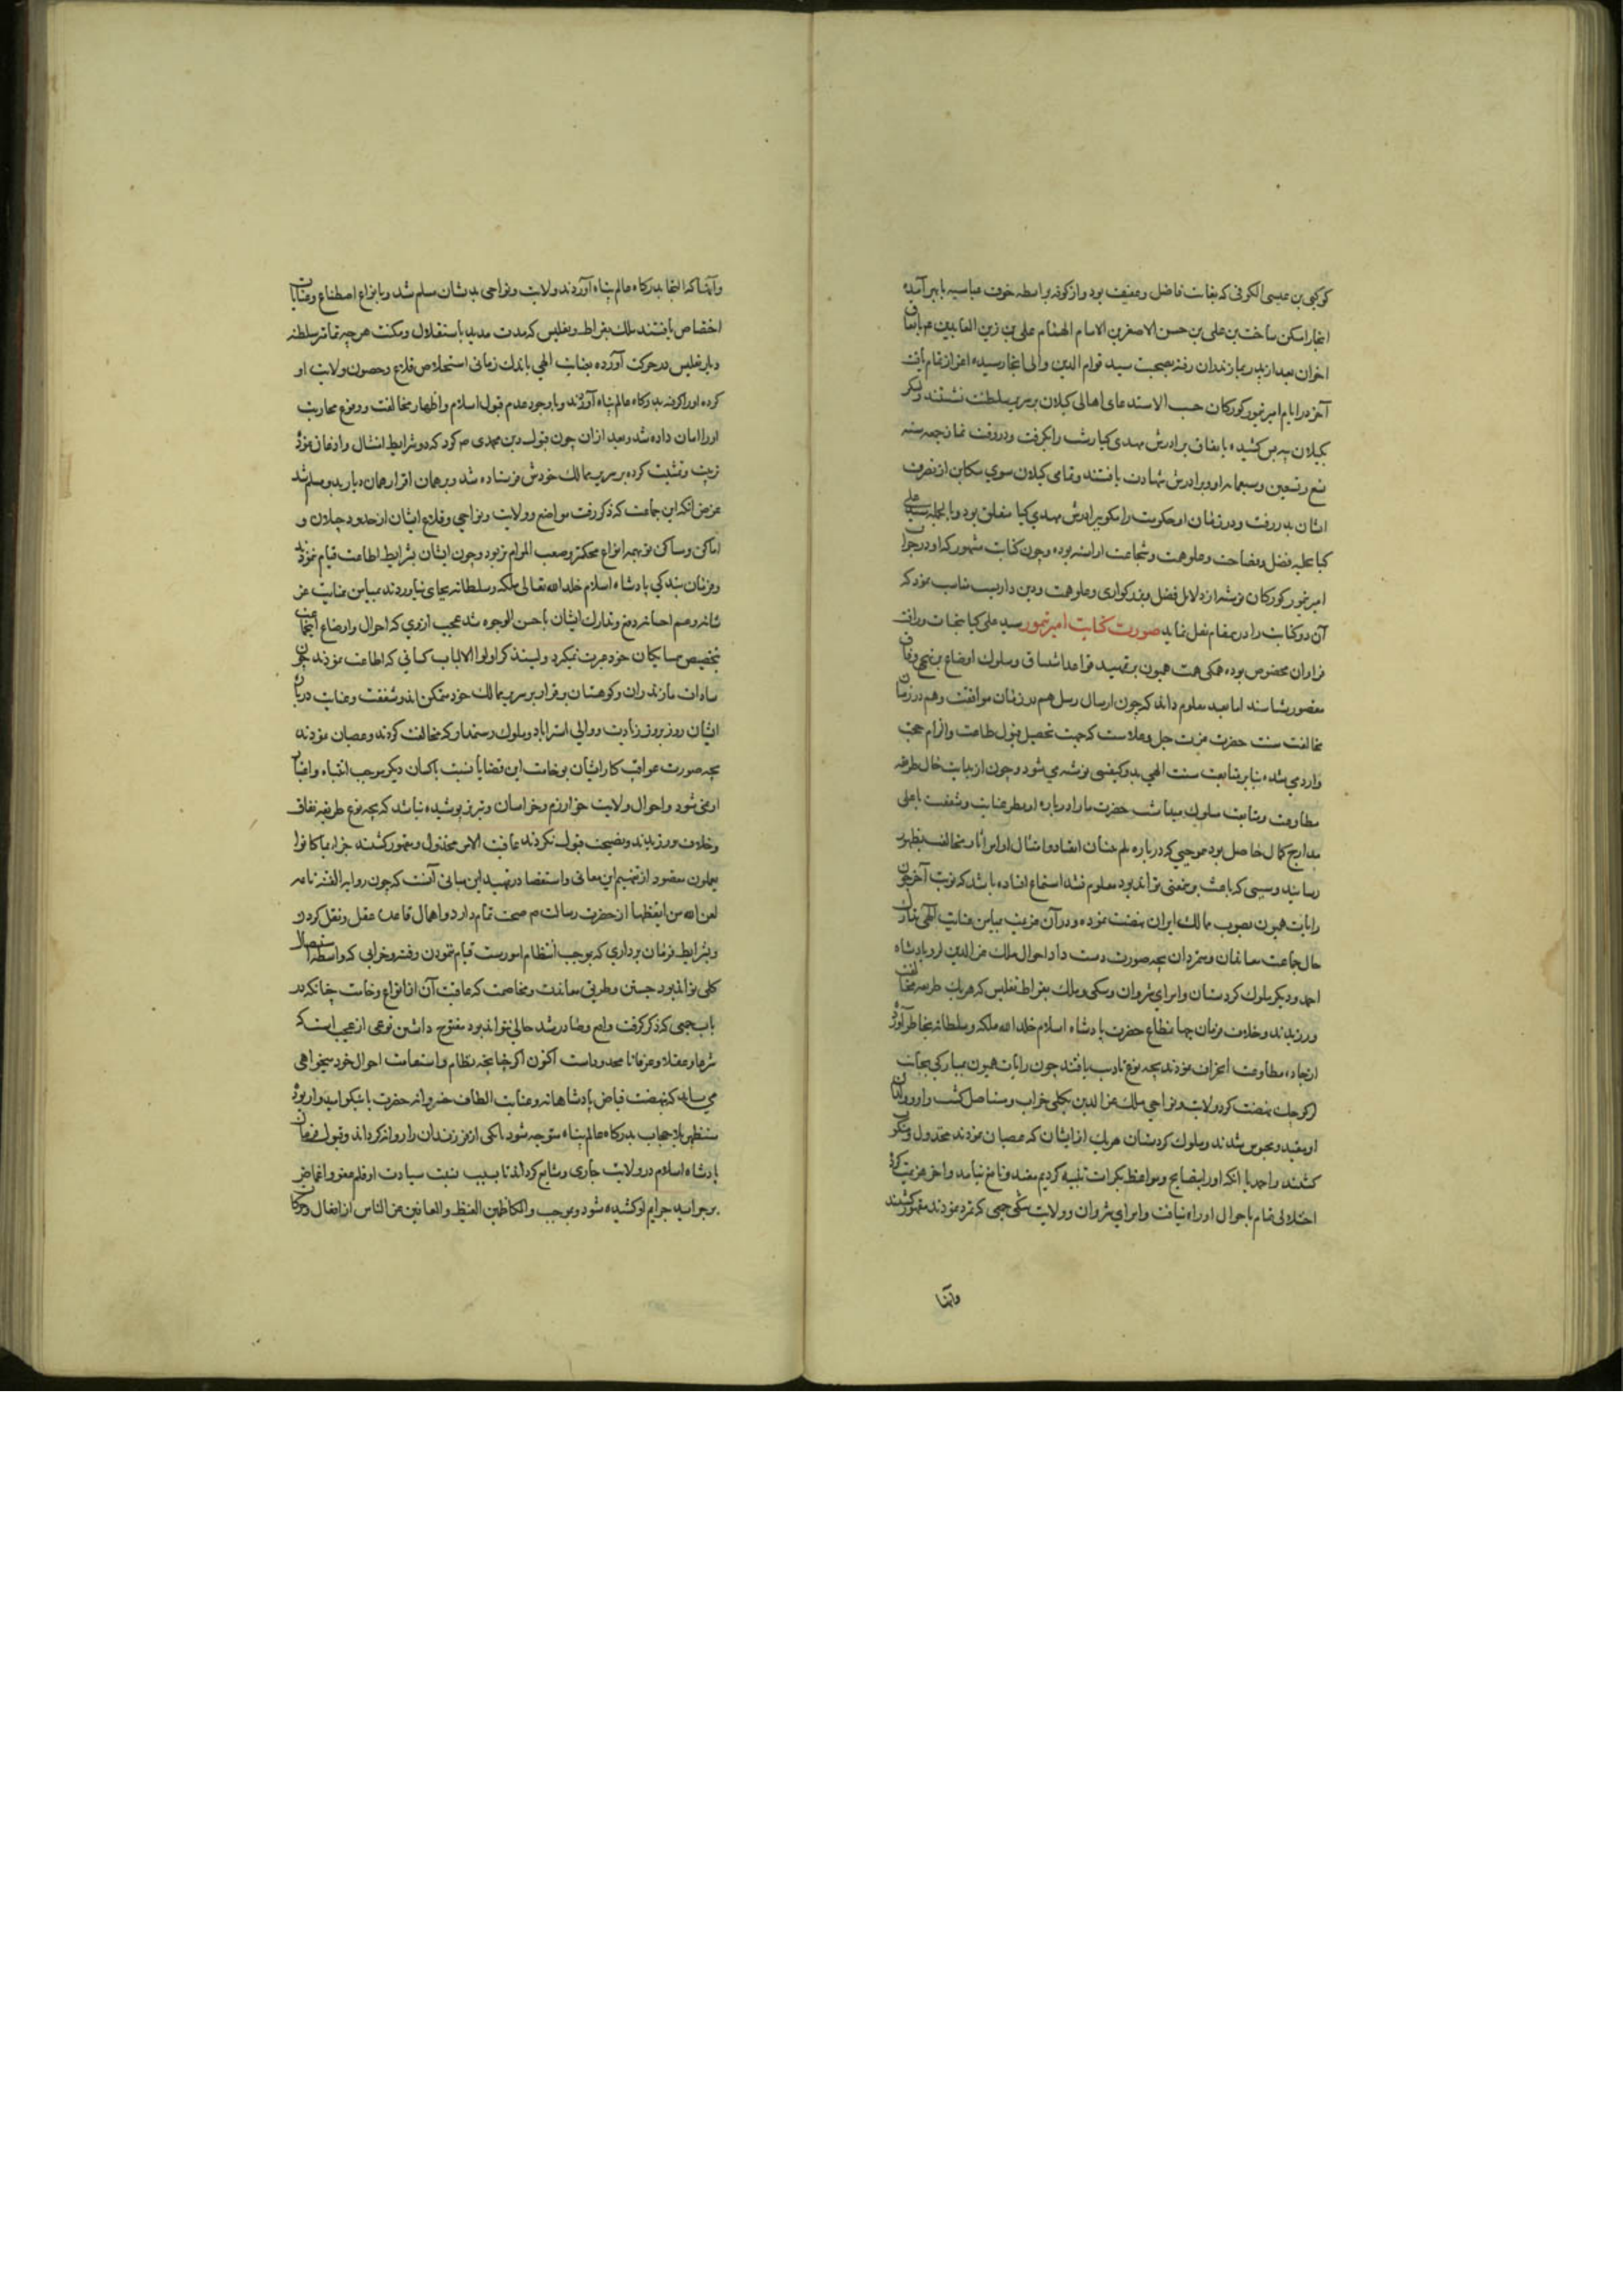 کوکبی بن عیسی الکوفی که بغایت فاضل و عفیف بود و از کوفه بواسطه خوف عباسیه بابهر آمده
انجا را مسکن ساخت بن علی بن حسن الاصغر بن الامام الهمام علی بن زین العابدین عم باتفاق
اخوان بعد از پدر بمازندران رفته بصحبت سید قوام الدین والی انجا رسیده اعزاز تمام یافت
آخر در ایام امیر تیمور کورکان حسب الاستدعای اهالی کیلان بر سریر سلطنت نشستند و لشکر
بکیلان به پس کشیده باتفاق برادرش مهدی کیا رشت را بکرفت و در وقت نماز جمعه سنه
تسع و تسعین و سبعمایه او و برادرش شهادت یافتند و تمامی کیلان سوی مکان از تصرف
ایشان بدر رفت و در زمان او حکومت رانکو ببرادرش مهدی کیا متعلق بود و بالجمله سید علی
کیا بحلیه فضل و فصاحت و علو همت و شجاعت اراسته بوده و چون کتابت مشهور که او در جواب
امیر تیمور کورکان نوشته از دلایل فضل و بزرکواری و علو همت و دین داریست مناسب نمود که
آن دو کتابت را درین مقام نقل نماید صورت کتابت امیر تیمور سید علی کیا بعنایت و رافت
فراوان مخصوص بوده همکی همت همیون بر تمهید قواعد اتساق و سلوک اوضاع بر نهج وفاق
مقصور شناسند اما بعد معلوم داند که چون ارسال رسل هم در زمان موافقت و هم در زمان
مخالفت سنت حضرت عزت جل و علاست که جهت تحصیل قبول طاعت و الزام حجت
وارد می شده بنابر متابعت سنت الهی بدو کیفیتی نوشته می شود و چون از بدایت حال طریقه
مطاوعت و متابعت سلوک میداشت حضرت ما را درباره او نظر عنایت و شفقت باعلی
مدارج کمال حاصل بود موجبی که درباره
رسانید و سببی که باعث بر معنی تواند بود معلوم نشد استماع افتاده باشد که نوبت آخر چون
رایات همیون بصوب ممالک ایران نهضت نموده و در آن عزیمت بمیامن عنایت الهی
حال جماعت معاندان و متمردان بچه صورت دست داد احوال ملک عزالدین لر و پادشاه
احمد و دیکر ملوک کردستان و امرای شروان و شکی و ملک بقراط تفلیس که هر یک طریقه مخالفت
ورزیدند و خلاف فرمان جهان مطاع حضرت پادشاه اسلام خلد الله ملکه و سلطانه بخاطر آورد
از جاده مطاوعت انحراف نمودند بچه نوع تادیب یافتند چون رایات همیون بمبارکی بجانب
لر کوچک نهضت کرد ولایت و نواحی ملک عزالدین بکلی خراب و مستاصل کشت و او و ولدان
او مقید و محبوس شدند و ملوک کردستان هر یک از ایشان که عصیان نمودند مخذول و منکوب
کشتند و احمد با انکه او را بنصایح و مواعظ بکرات تنبیه کردیم مفید و نافع نیامد و اخر عزیمت کرد
اختلالی تمام باحوال او راه یافت و امرای شروان و ولایت شکی جمعی که تمرد نمودند مقهور کشتند
وانها
وانها که التجا بدرکاه عالم پناه آوردند ولایت و نواحی بدیشان مسلم شد و بانواع اصطناع و عنایات
اختصاص یافتند ملک بقراط تفلیس که مدت مدید باستقلال و مکنت هرچه تمامتر سلطنه
دیار تفلیس در حرکت آورده بعنایت الهی باندک زمانی استخلاص قلاع و حصون ولایت او
کرده او را کرفته بدرکاه عالم پناه آوردند و باوجود عدم قبول اسلام و اظهار مخالفت و وقوع محاربت
او را امان داده شد و بعد از ان چون قبول دین محمدی ص کرد که دو شرایط امتثال و اذعان نمود
تربیت و تمشیت کرده بر سریر ممالک خودش فرستاده شد و برهمان اقرار همان دیار بدو مسلم شد
غرض انکه این جماعت که ذکر رفت مواضع و ولایت و نواحی و قلاع ایشان از حدود جیلان و
اماکن و مساکن نو بهمه انواع محکمتر و صعب المرام تر بود و چون ایشان بشرایط اطاعت قیام ننمودند
و فرمان بندکی پادشاه اسلام خلد الله تعالی ملکه و سلطانه بجای نیاوردند بمیامن عنایت عز
شانه و عمم احسانه دفع و تدارک ایشان باحسن الوجوه شد عجب ازوی که احوال و اوضاع اینجماعت
بتخصیص همسایکان خود عبرت نمیکرد و لیتذکر اولوا الالباب کسانی که اطاعت نمودند چون
سادات مازندران و کوهستان برقرار بر سریر ممالک خود متمکن اند و شفقت و عنایت درباره
ایشان روز بروز زیادت و والی استراباد و ملوک رستمدار که مخالفت کردند و عصیان نمودند
بچه صورت عواقب کار ایشان بوخامت این قضایا نسبت باکسان دیکر موجب انتباه و اعتبار
او نمی شود و احوال ولایت خوارزم و خراسان و تبریز پوشیده نباشد که بچه نوع طریقه نفاق
و خلاف ورزیدند و نصیحت قبول نکردند عاقبت الامر مخذول و مقهور کشتند جزاء بما کانوا
یعملون مقصود از تفهیم این معانی و استقصا در تمهید این مبانی آنست که چون روایه الفتنه نائمه
لعن الله من ایقظها از حضرت رسالت ص صحت تمام دارد و اهمال قاعده عقل و نقل کرد و
وبشرایط فرمان برداری که بموجب انتظام امورست قیام ننمودن و فتنه و خرابی که واسطه استیصال
کلی تواند بود جستن و طریق ممانعت و مخاصمت که عاقبت آن از انواع وخامت چنانکه در
باب جمعی که ذکر کرفت واقع و صادر شد حالی نتواند بود مفتوح داشتن نوعی از عجب است که
شرعا و عقلا و عرفا نامحدود است اکنون اکر چنانچه نظام و استقامت احوال خود میخواهی
می باید که بنهضت فیاض پادشاهانه و عنایت الطاف خسروانه حضرت ما نیکو امیدوار بوده
مستظهر بلاحجاب بدرکاه عالم پناه متوجه شود یا یکی از فرزندان را روانه کرداند و قبول فرمان
پادشاه اسلام در ولایت جاری و شایع کرداند تا بسبب نسبت سیادت او قلم عفو و اغماض
بر جراید جرایم او کشیده شود و بموجب والکاظمین الغیظ والعافین عن الناس از افعال و حرکات